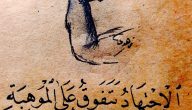 الْاِجْتِهَادُ تَتَفَوَّقُ عَلَى الْمَوْهِبَةِ